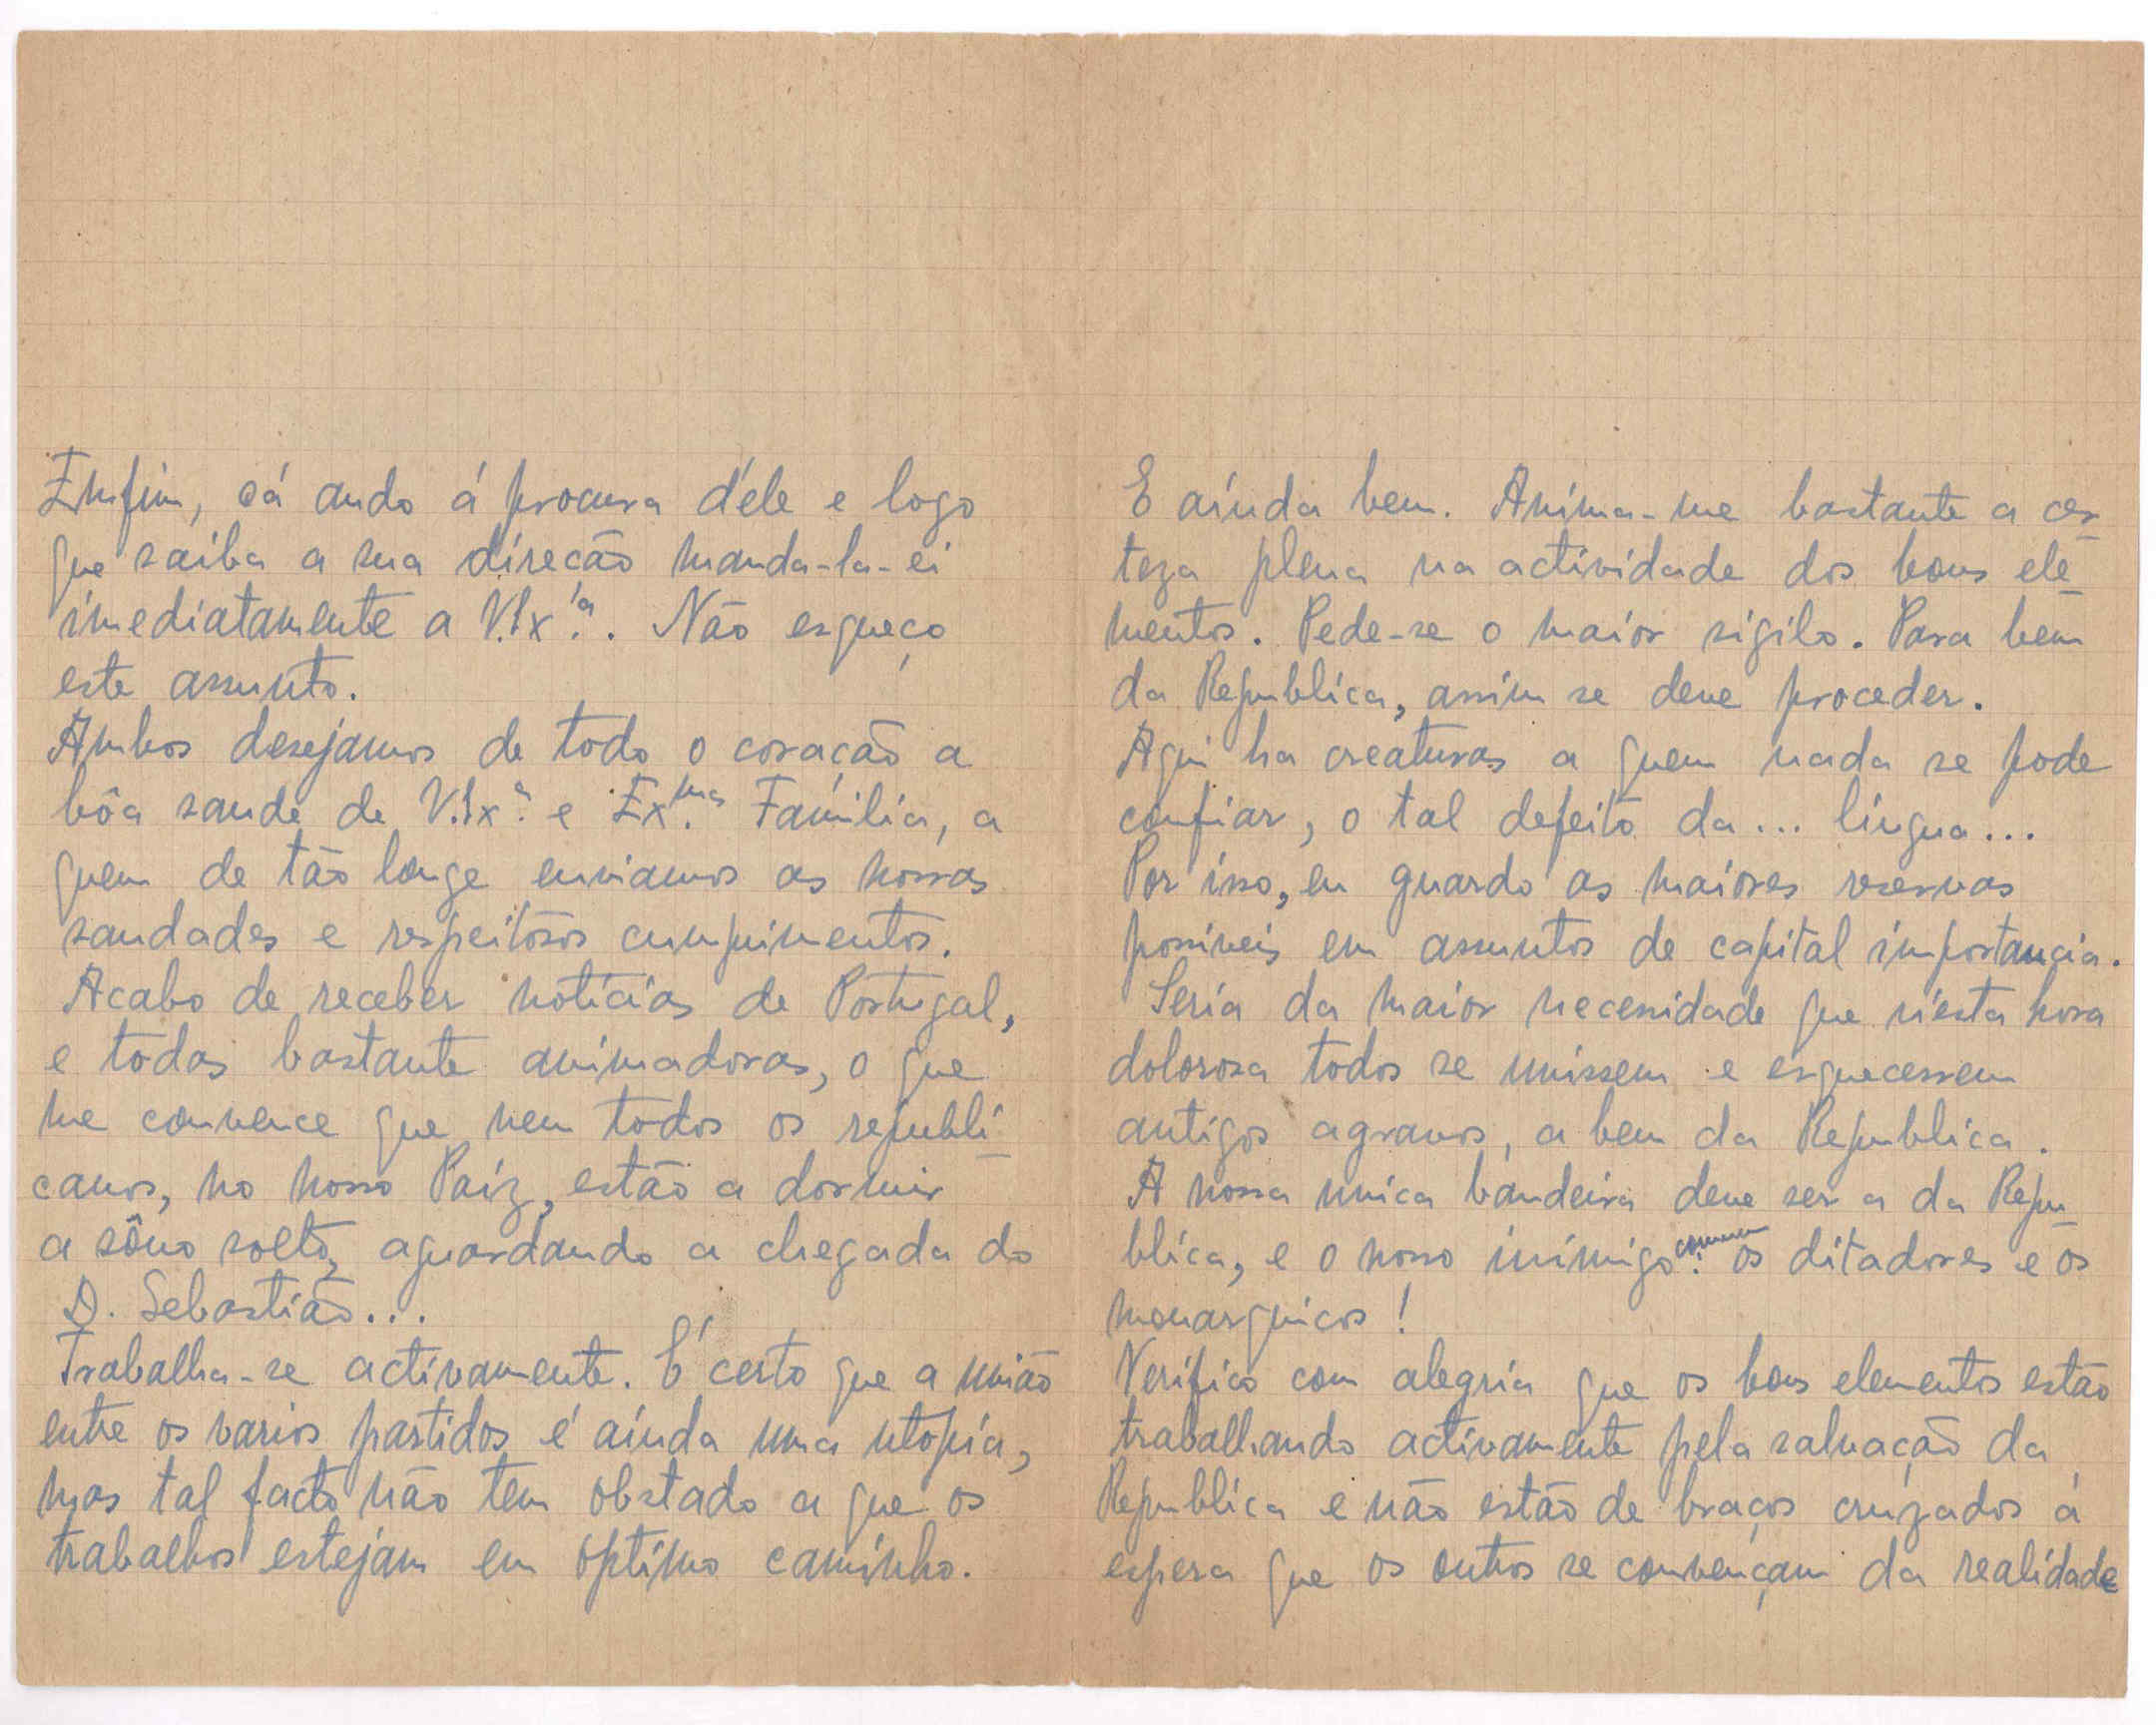 Emfim, cá ando á procura d'ele e logo
que saiba a sua direcão manda-la-ei
imediatamente a V. Ex.ª. Não esqueço
este assunto.
Ambos desejamos de todo o coração a
bôa saude de V. Ex.ª e Ex.mas Família, a
quem de tão longe enviamos as nossas
saudades e respeitosos cumprimentos.
Acabo de receber notícias de Portugal,
e todas bastante animadoras, o que
me convence que nem todos os republi-
canos, no nosso Paíz, estão a dormir
a sôno solto, aguardando a chegada do
D. Sebastião...
Trabalha-se activamente. É certo que a união
entre os varios partidos é aínda uma utopia,
mas tal facto não tem obstado a que os
trabalhos estejam em optimo caminho.
E aínda bem. Anima-me bastante a cer-
teza plena na actividade dos bons ele-
mentos. Pede-se o maior sigilo. Para bem
da Republica, assim se deve proceder.
Aqui ha creaturas a quem nada se pode
confiar, o tal defeito da... língua...
Por isso, eu guardo as maiores reservas
possiveis em assuntos de capital importancia.
Seria da maior necessidade que n'esta hora
dolorosa todos se unissem e esquecessem
antigos agravos, a bem da Republica.
A nossa unica bandeira deve ser a da Repu-
blica, e o nosso inimigo comum: os ditadores e os
monarquicos!
Verifico com alegria que os bons elementos estão
trabalhando activamente pela salvação da
Republica e não estão de braços cruzados á
espera que os outros se convençam da realidade